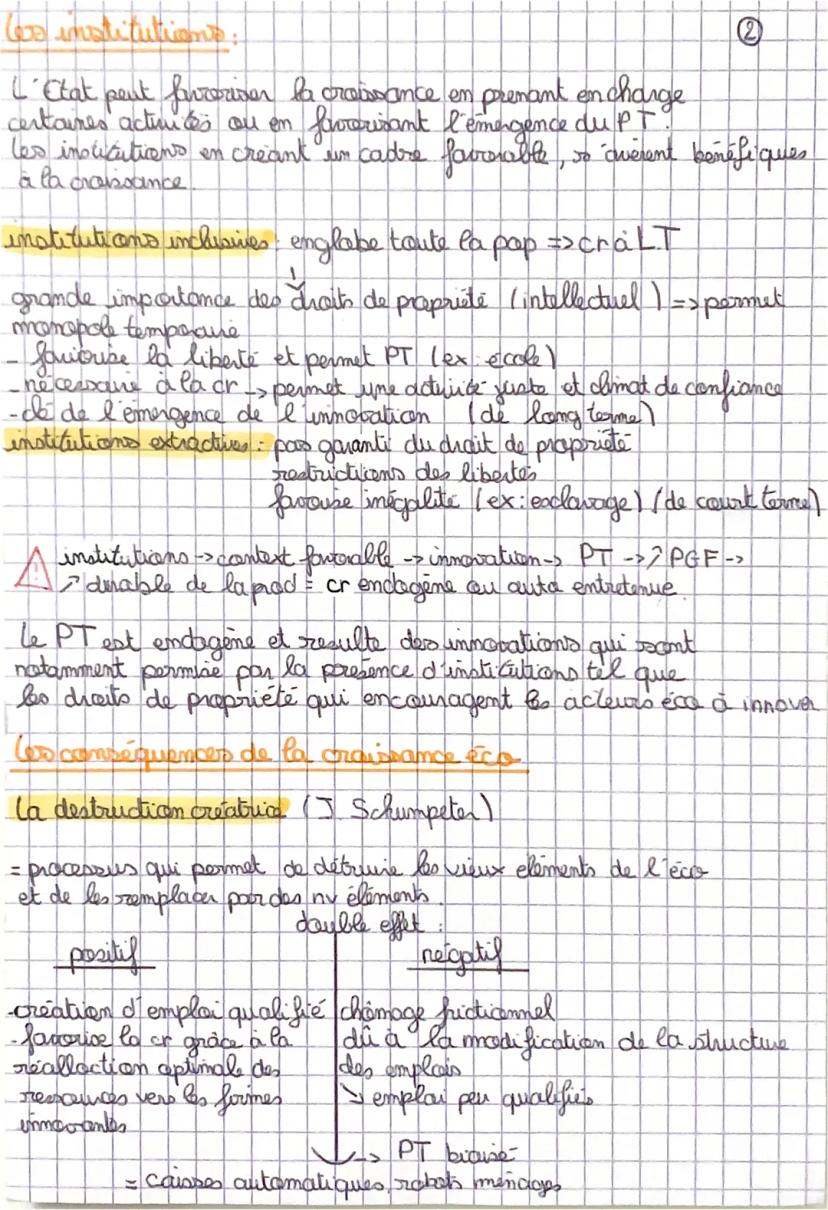 Les institutions : ②
L'Etat peut favoriser la croissance en prenant en charge
certaines activités ou en favorisant l'émergence du PT.
Les institutions en créant un cadre favorable, s'avèrent bénéfiques
à la croissance.
institutions inclusives : englobe toute la pop => cr à LT
grande importance des droits de propriété (intellectuel) => permet
monopole temporaire
- favorise la liberté et permet PT (ex : école)
- nécessaire à la cr -> permet une activité juste et climat de confiance
- clé de l'émergence de l'innovation (de long terme)
institutions extractives : pas garanti du droit de propriété
restrictions des libertés
favorise inégalité (ex : esclavage) (de court terme)
⚠ institutions -> context favorable -> innovation -> PT -> ↗ PGF ->
↗ durable de la prod = cr endogène ou auto entretenue.
Le PT est endogène et resulte des innovations qui sont
notamment permise par la présence d'institutions tel que
les droits de propriété qui encouragent les acteurs éco à innover
Les conséquences de la croissance éco
La destruction créatrice (J Schumpeter)
= processus qui permet de détruire les vieux éléments de l'éco
et de les remplacer par des nv éléments.
double effet :
positif négatif
- création d'emploi qualifié chômage frictionnel
- favorise la cr grâce à la dû à la modification de la structure
réallaction optimale des des emplois
ressources vers les firmes ↘ emploi peu qualifiés
innovantes
-> PT biaisé
= caisses automatiques, robots ménages